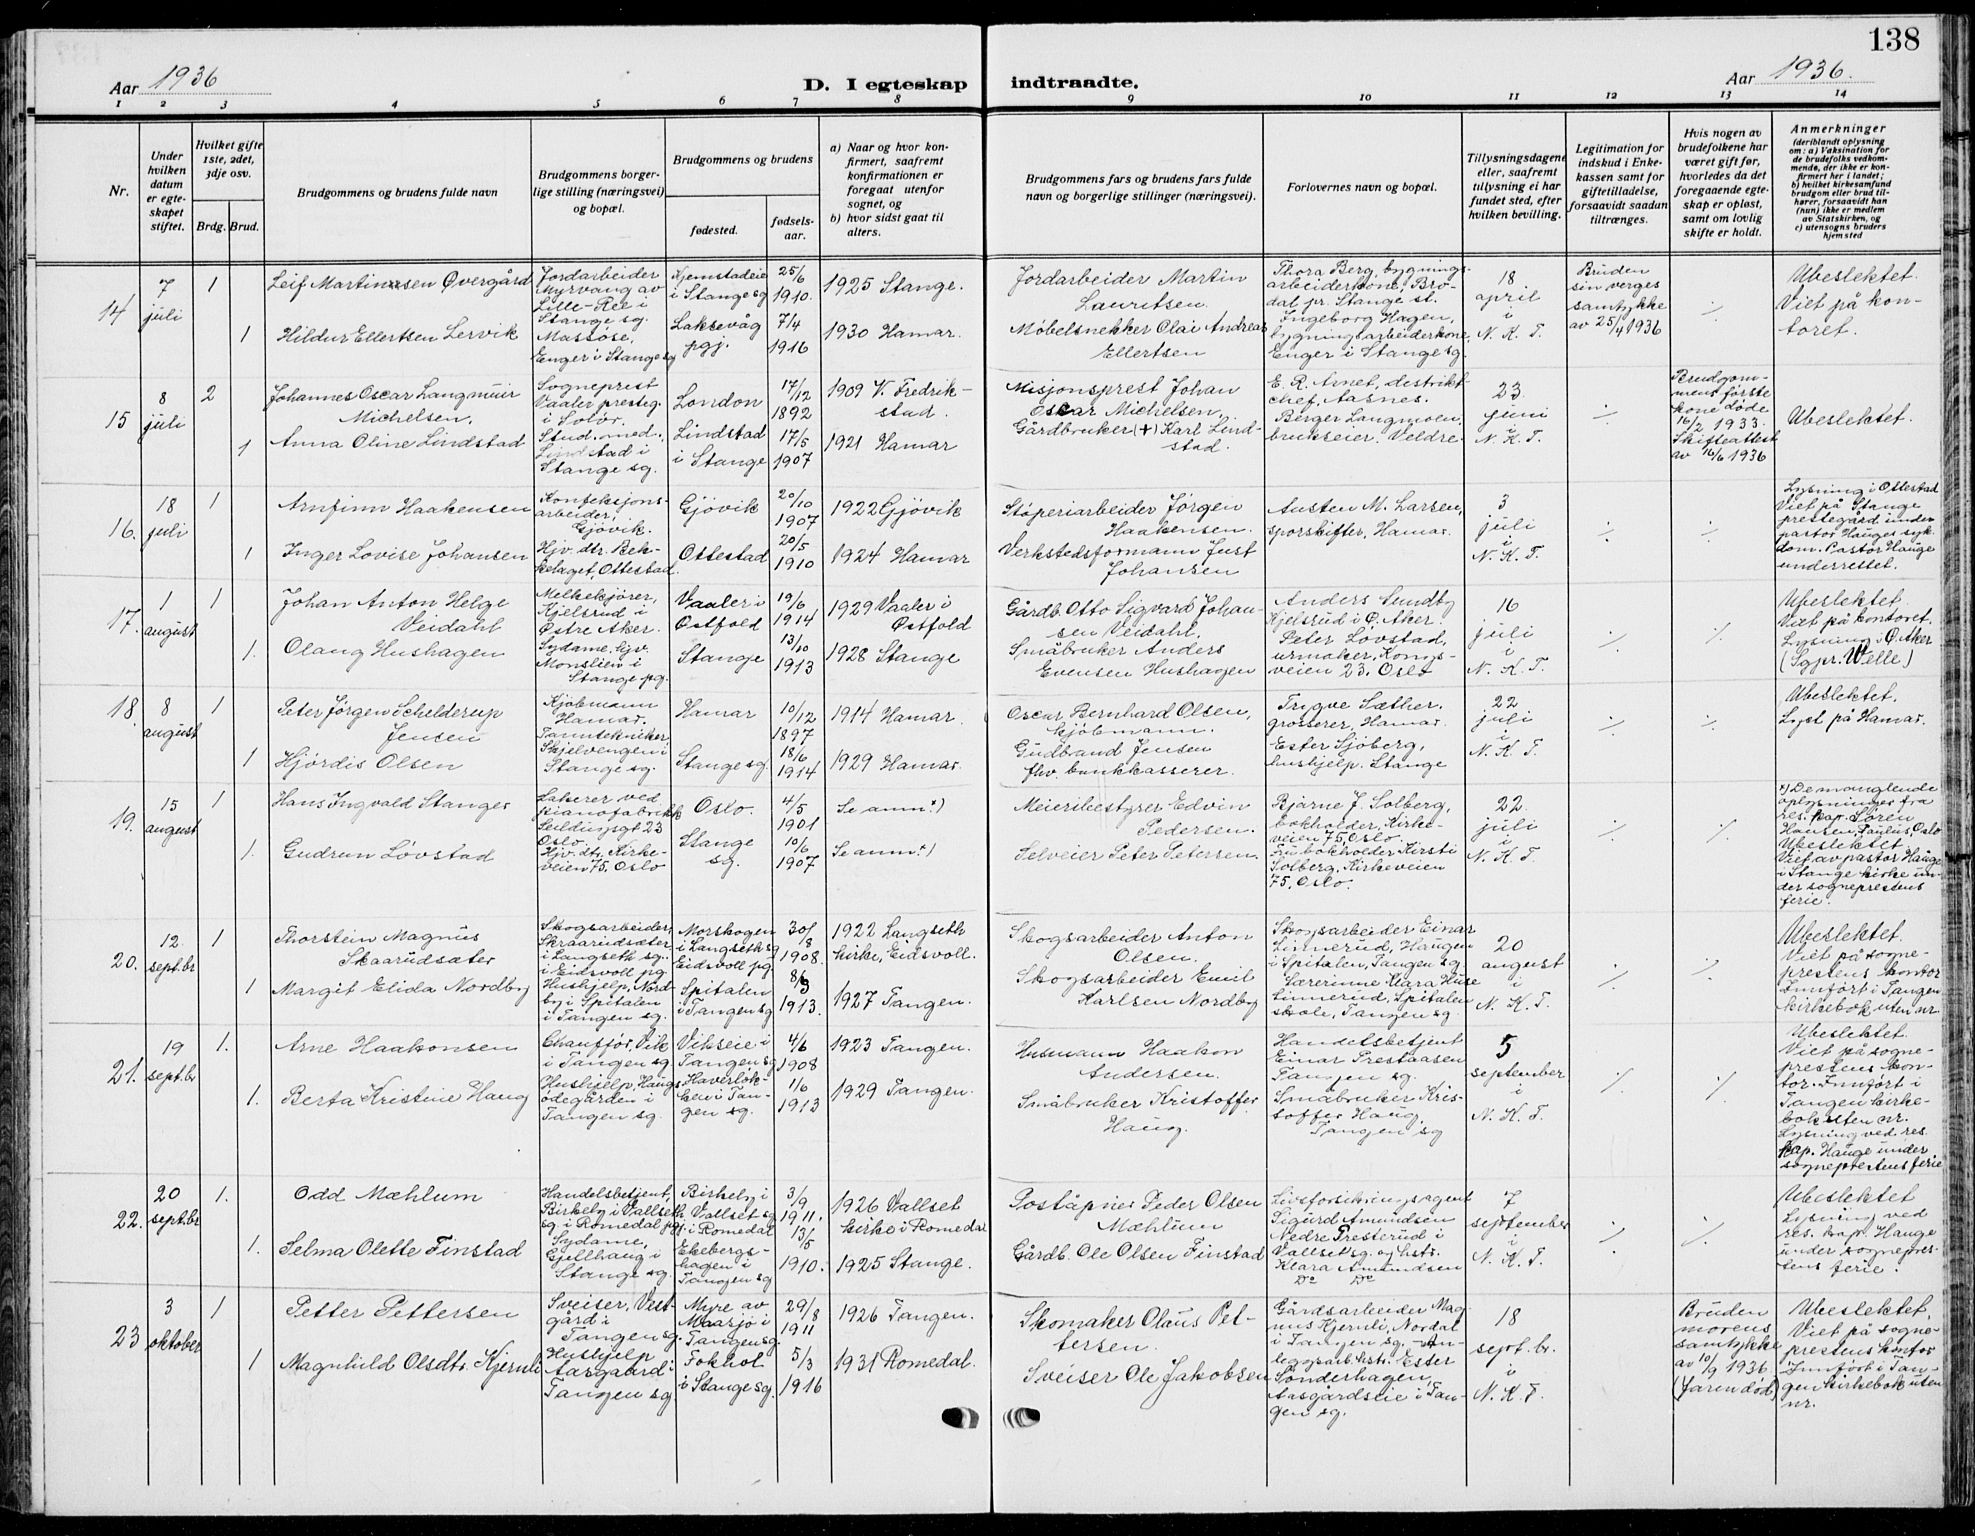 138
Aar 1936
D. I egteskap
indtraadte.
Aar 1936.
1 2 3 4 5 6 7 8 9 10 11 12 13 14
Nr.
Under
hvilken
datum
er egte-
skapet
stiftet.
Hvilket gifte
1ste, 2det,
3dje osv.
Brdg. Brud.
Brudgommens og brudens fulde navn
Brudgommens borger-
lige stilling (næringsvei)
og bopæl.
Brudgommens og brudens
fødested.
fødsels-
aar.
a) Naar og hvor kon-
firmert, saafremt
konfirmationen er
foregaat utenfor
sognet, og
b) hvor sidst gaat til
alters.
Brudgommens fars og brudens fars fulde
navn og borgerlige stillinger (næringsvei).
Forlovernes navn og bopæl.
Tillysningsdagene
eller, saafremt
tillysning ei har
fundet sted, efter
hvilken bevilling.
Legitimation for
indskud i Enke-
kassen samt for
giftetilladelse,
forsaavidt saadan
tiltrænges.
Hvis nogen av
brudefolkene har
været gift før,
hvorledes da det
foregaaende egte-
skap er opløst,
samt om lovlig
skifte er holdt.
Anmerkninger
(deriblandt oplysning
om: a) Vaksination for
de brudefolks vedkom-
mende, der ikke er kon-
firmert her i landet;
b) hvilket kirkesamfund
brudgom eller brud til-
hører, forsaavidt han
(hun) ikke er medlem
av Statskirken, og
c) utensogns bruders
hjemsted
14
7
juli
1
Leif Martinsen Øvergård
Jordarbeider
Myrvang av
Lille-Ree i
Stange sg.
Kjemstadeie
i Stange sg
25/6
1910.
1925 Stange.
Jordarbeider Martin
Lauritsen.
Thora Berg, bygnings-
arbeiderkone, Bro-
dal pr. Stange st.
18
april
i
N. K. T.
Bruden
sin verges
samtykke
av 25/4 1936
./.
Ubeslektet.
Viet på kon-
toret.
1
Hildur Ellertsen Lervik
Massøse,
Enger i Stange sg
Laksevåg
pgj.
7/4
1916
1930 Hamar.
Møbelsnekker Olai Andreas
Ellertsen
Ingeborg Hagen,
bygningsarbeiderkone,
Enger i Stange sg.
15
8
juli
2
Johannes Oscar Langmuir
Michelsen.
Sogneprest
Vaaler presteg.
i Solør.
London
17/12
1892
1909 V. Fredrik-
stad.
Misjonsprest Johan
Oscar Michelsen,
E. R. Arnet, destrikt-
chef, Aasnes.
23.
juni
i
N. K. T.
./.
Brudgom-
mens første
kone døde
16/2 1933.
Skifteattest
av 16/6 1936
Ubeslektet.
1
Anna Oline Lindstad
Stud. med.,
Lindstad i
Stange sg.
Lindstad
i Stange
17/5
1907
1921 Hamar
Gårdbruker (+) Karl Lind-
stad.
Berger Langmoen,
brukseier, Veldre.
16.
18
juli
1
Arnfinn Haakensen
Konfeksjons-
arbeider,
Gjövik.
Gjövik
20/10
1907
1922 Gjövik
Støperiarbeider Jørgen
Haakensen.
Austen M. Larsen,
sporskifter, Hamar.
3
juli
i
N. K. T.
./.
./.
Lysning i Ottestad
Viet på Stange
prestegård under
pastor Hauges syk-
dom. Pastor Hauge
underrettet.
1
Inger Lovise Johansen
Hjv. dtr. Bek-
kelaget, Ottestad.
Ottestad
20/5
1910
1924 Hamar
Verkstedsformann Just
Johansen
17.
1
august
1
Johan Anton Helge
Veidahl
Melkekjører,
Kjelsrud i
Østre Aker.
Vaaler i
Østfold
19/6
1914
1929 Vaaler i
Østfold
Gårdb. Otto Sigvard Johan-
sen Veidahl.
Anders Sundby
Kjelsrud i Ø. Aker.
16
juli
i
N. K. T.
./.
./.
Ubeslektet.
Viet på kontoret.
Lysning i Ø. Aker
(Sgpr. Welle)
1.
Olaug Hushagen
Sydame, hjv.
Monslien i
Stange pg.
Stange
13/10
1913
1928 Stange
Småbruker Anders
Evensen Hushagen
Peter Løvstad,
urmaker, Kongs-
veien 23. Oslo
18.
8
august
1
Peter Jørgen Schelderup
Jensen
Kjøbmann
Hamar.
Hamar
10/12
1897
1914 Hamar.
Oscar Bernhard Olsen,
kjøbmann.
Trygve Sæther,
grosserer, Hamar.
22
juli
i
N. K. T.
./.
./.
Ubeslektet.
Lyst på Hamar.
1
Hjørdis Olsen
Tanntekniker
Skjelvengen i
Stange sg.
Stange sg.
18/6
1914
1929 Hamar.
Gudbrand Jensen
fhv. bankkasserer.
Ester Sjøberg,
hushjelp. Stange
19.
15
august
1
Hans Ingvald Stanger
Lakerer ved
pianofabrikk
Seildugsgt 23
Oslo.
Oslo.
4/5
1901
Se anm.x)
Meieribestyrer Edvin
Pedersen.
Bjarne J. Solberg,
bokholder, Kirke-
veien 75, Oslo.
22.
juli
i
N. K. T.
./.
./.
x) De manglende
oplysninger fra
res. kap. Søren
Hansen, Paulus, Oslo
Ubeslektet
Viet av pastor Hauge
i Stange kirke un-
der sogneprestens
ferie.
1.
Gudrun Løvstad
Hjv. dtr. Kirke-
veien 75. Oslo
Stange
sg.
10/6
1907
Se anm.x)
Selveier Peter Petersen.
Fru bokholder Kirsti
Solberg, Kirkeveien
75, Oslo.
20.
12.
sept.br
1
Thorstein Magnus
Skaarudsæter
Skogsarbeider,
Skraarudsæter
i Langseth sg.
i Eidsvoll pg.
Morskogen
i Langseth sg
Eidsvoll pg.
30/8
1908.
1922 Langseth
kirke, Eidsvoll.
Skogsarbeider Anton
Olsen.
Skogsarbeider Einar
Linnerud, Haugen
i Spitalen, Tangen sg
20
august
i
N. K. T.
./.
./.
Ubeslektet.
Viet på sogne-
prestens kontor
Innført i Tangen
kirkebok uten nr.
1
Margit Elida Nordby
Hushjelp, Nord-
by i Spitalen
i Tangen sg.
Spitalen
i Tangen sg
8/3
1913.
1927 Tangen.
Skogsarbeider Emil
Karlsen Nordby
Lærerinne Klara Huse
Linnerud, Spitalen
skole, Tangen sg.
21.
19
sept.br
1.
Arne Haakonsen
Chauffør, Vik
i Tangen sg
Vikseie i
Tangen sg
4/6
1908
1923 Tangen.
Husmann Haakon
Andersen.
Handelsbetjent
Einar Prestaasen
Tangen sg.
5
september
i
N. K. T.
./.
./.
Ubeslektet.
Viet på sogne-
prestens kon-
tor. Innført i
Tangen kirke-
bok uten nr.
Lysning ved res.
kap. Hauge under
sogneprestens ferie
1.
Berta Kristine Haug
Hushjelp, Haugs-
ødegården i
Tangen sg.
Kaverløk-
ken i Tan-
gen sg.
1/6
1913
1929 Tangen.
Småbruker Kristoffer
Haug.
Småbruker Kris-
toffer Haug.
Tangen sg
22.
20
sept.br
1.
Odd Mæhlum
Handelsbetjent,
Birkely i Vallset
sg. i Romedal pg.
Birkely i
Vallset sg
i Romedal
3/9
1911.
1926 Vallset
kirke i Romedal
Poståpner Peder Olsen
Mæhlum
Livsforsikringsagent
Sigurd Amundsen
Nedre Presterud i
Vallset sg. og hstr.
Klara Amundsen
Do Do
7
september
i
N. K. T.
./.
./.
Ubeslektet
Lysning ved
res. kap. Hauge
under sognepres-
tens ferie.
1.
Selma Olette Finstad
Sydame,
Gjellhaug i
Stange sg.
Ekebergs-
hagen i
Tangen sg
13/5
1910.
1925 Stange.
Gårdb. Ole Olsen Finstad
23
3
oktober
1
Petter Pettersen
Sveiser, Vest-
gård i
Tangen sg.
Myre av
Maarsjø i
Tangen sg.
29/8
1911
1926 Tangen.
Skomaker Olaus Pet-
tersen.
Gårdsarbeider Mag-
nus Kjernli, Nordal
i Tangen sg. – An-
leggsarb. hstr. Ester
Sønderhagen,
Aasgårdseie i Tan-
gen sg.
18
sept. br.
i
N. K. T.
Bruden
morens
samtykke
av 10/9 1936
(Faren død)
Ubeslektet,
Viet på sogne-
prestens kontor
Innført i Tan-
gen kirkebok uten
nr.
1
Magnhild Olsdtr. Kjernli
Hushjelp
Aasgaard
Tangen sg.
Fokhol
i Stange sg.
5/3
1916
1931 Romedal.
Sveiser Ole Jakobsen